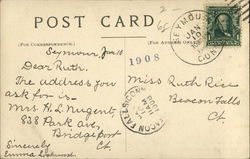 POST CARD
(FOR CORRESPONDENCE)
(FOR ADDRESS ONLY)
SEYMOUR
JAN
CONN.
2
68
1908
Seymour, Jan. 18
Dear Ruth,
The address you
ask for is-
Mrs. H. L. Nugent,
838 Park ave,
Bridgeport
Ct.
Sincerely
Emma
Miss Ruth Rice
Beacon Falls
Ct.
BEACON FALLS, CONN.
JAN